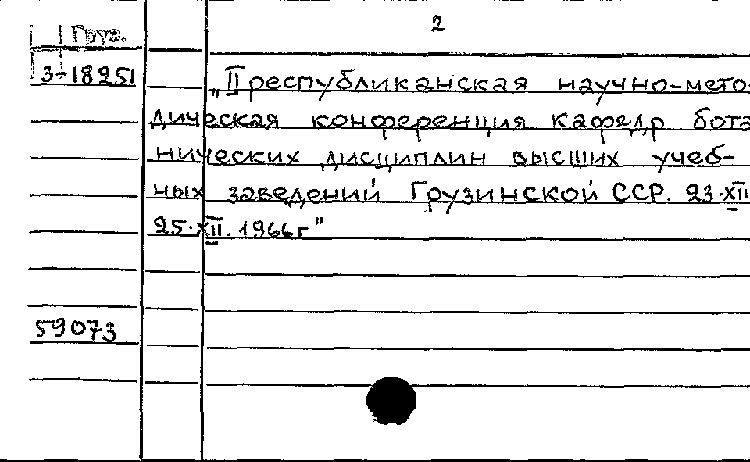 2
Груз.
3-18251
„II республиканская научно-мето-
дическая конференция кафедр бота
нических дисциплин высших учеб-
ных заведений Грузинской ССР. 23·XII
25·XII. 1966г"
59073